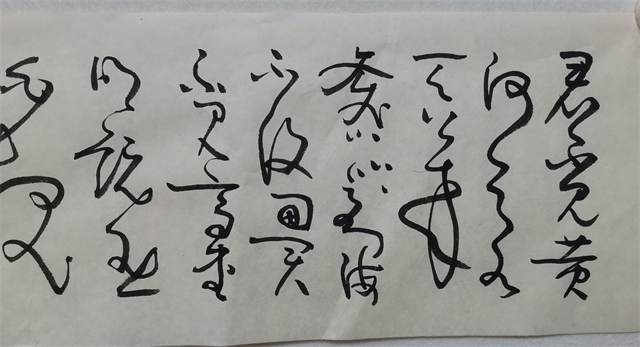 君不见黄
河之水
天上来
奔流到海
不復回君
不见高堂
明镜悲